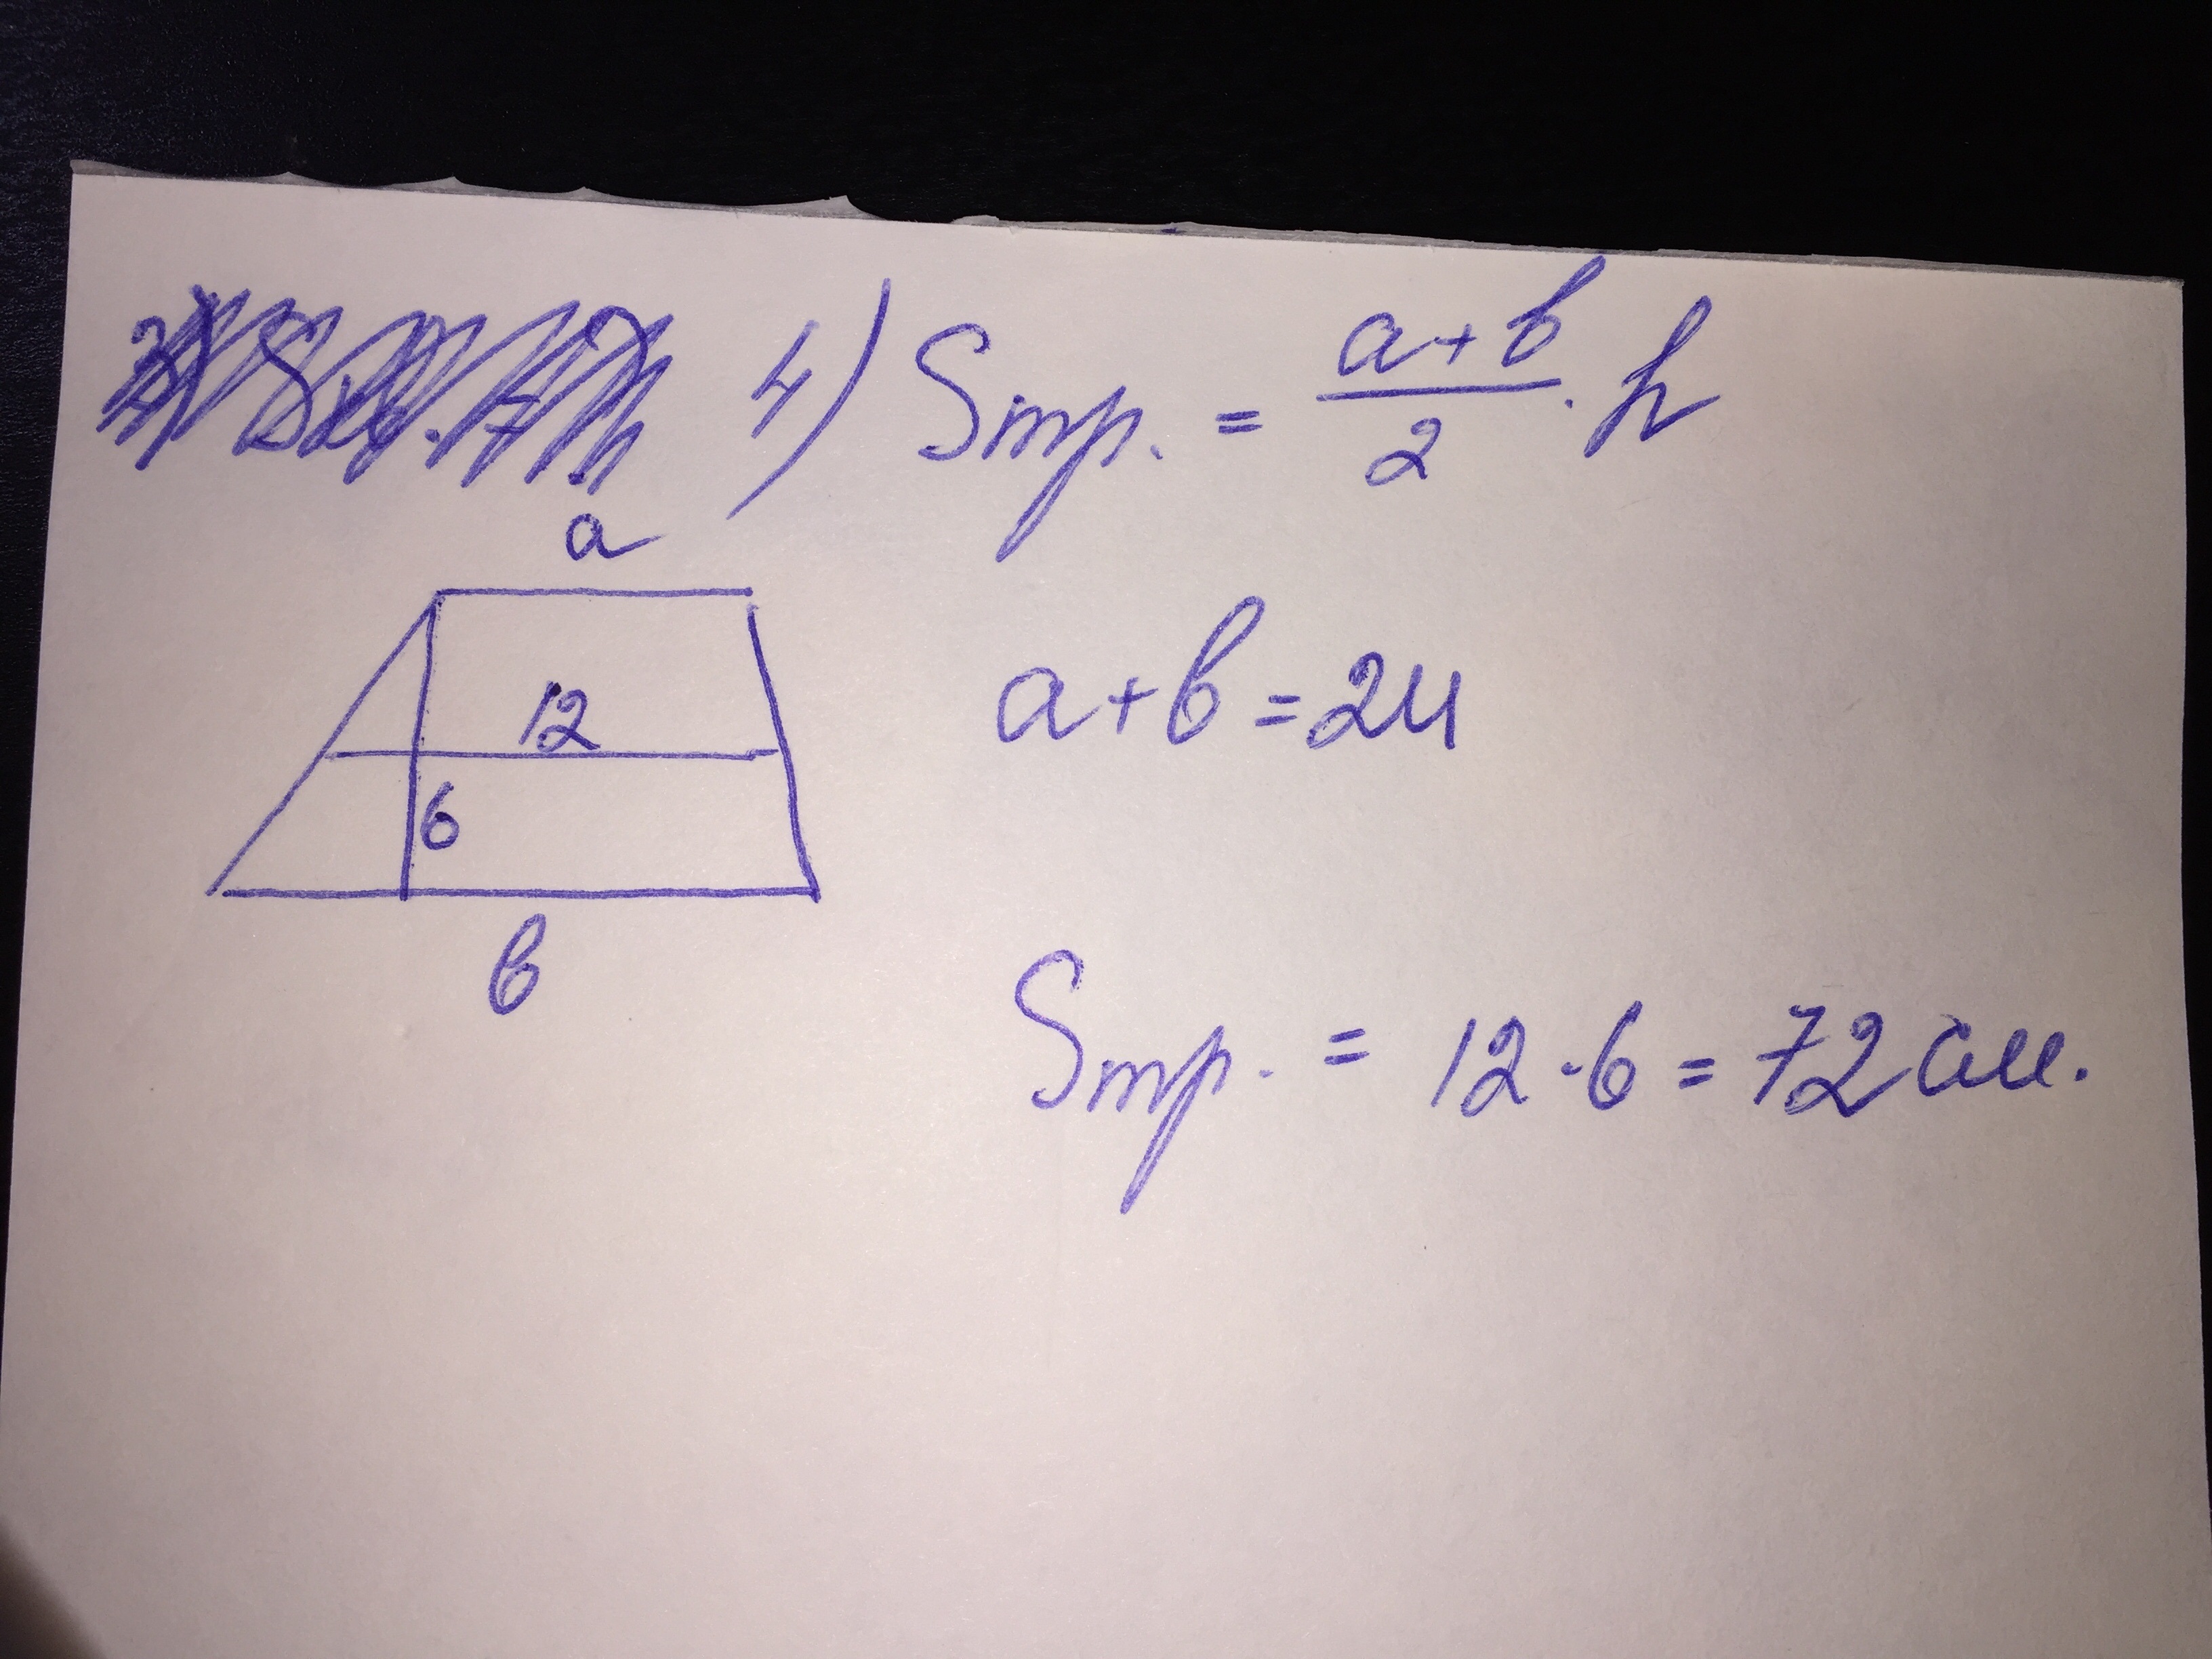 4) Sтр. = a+b/2 · h
a
12
a+b=24
6
b
Sтр. = 12·6=72 см.